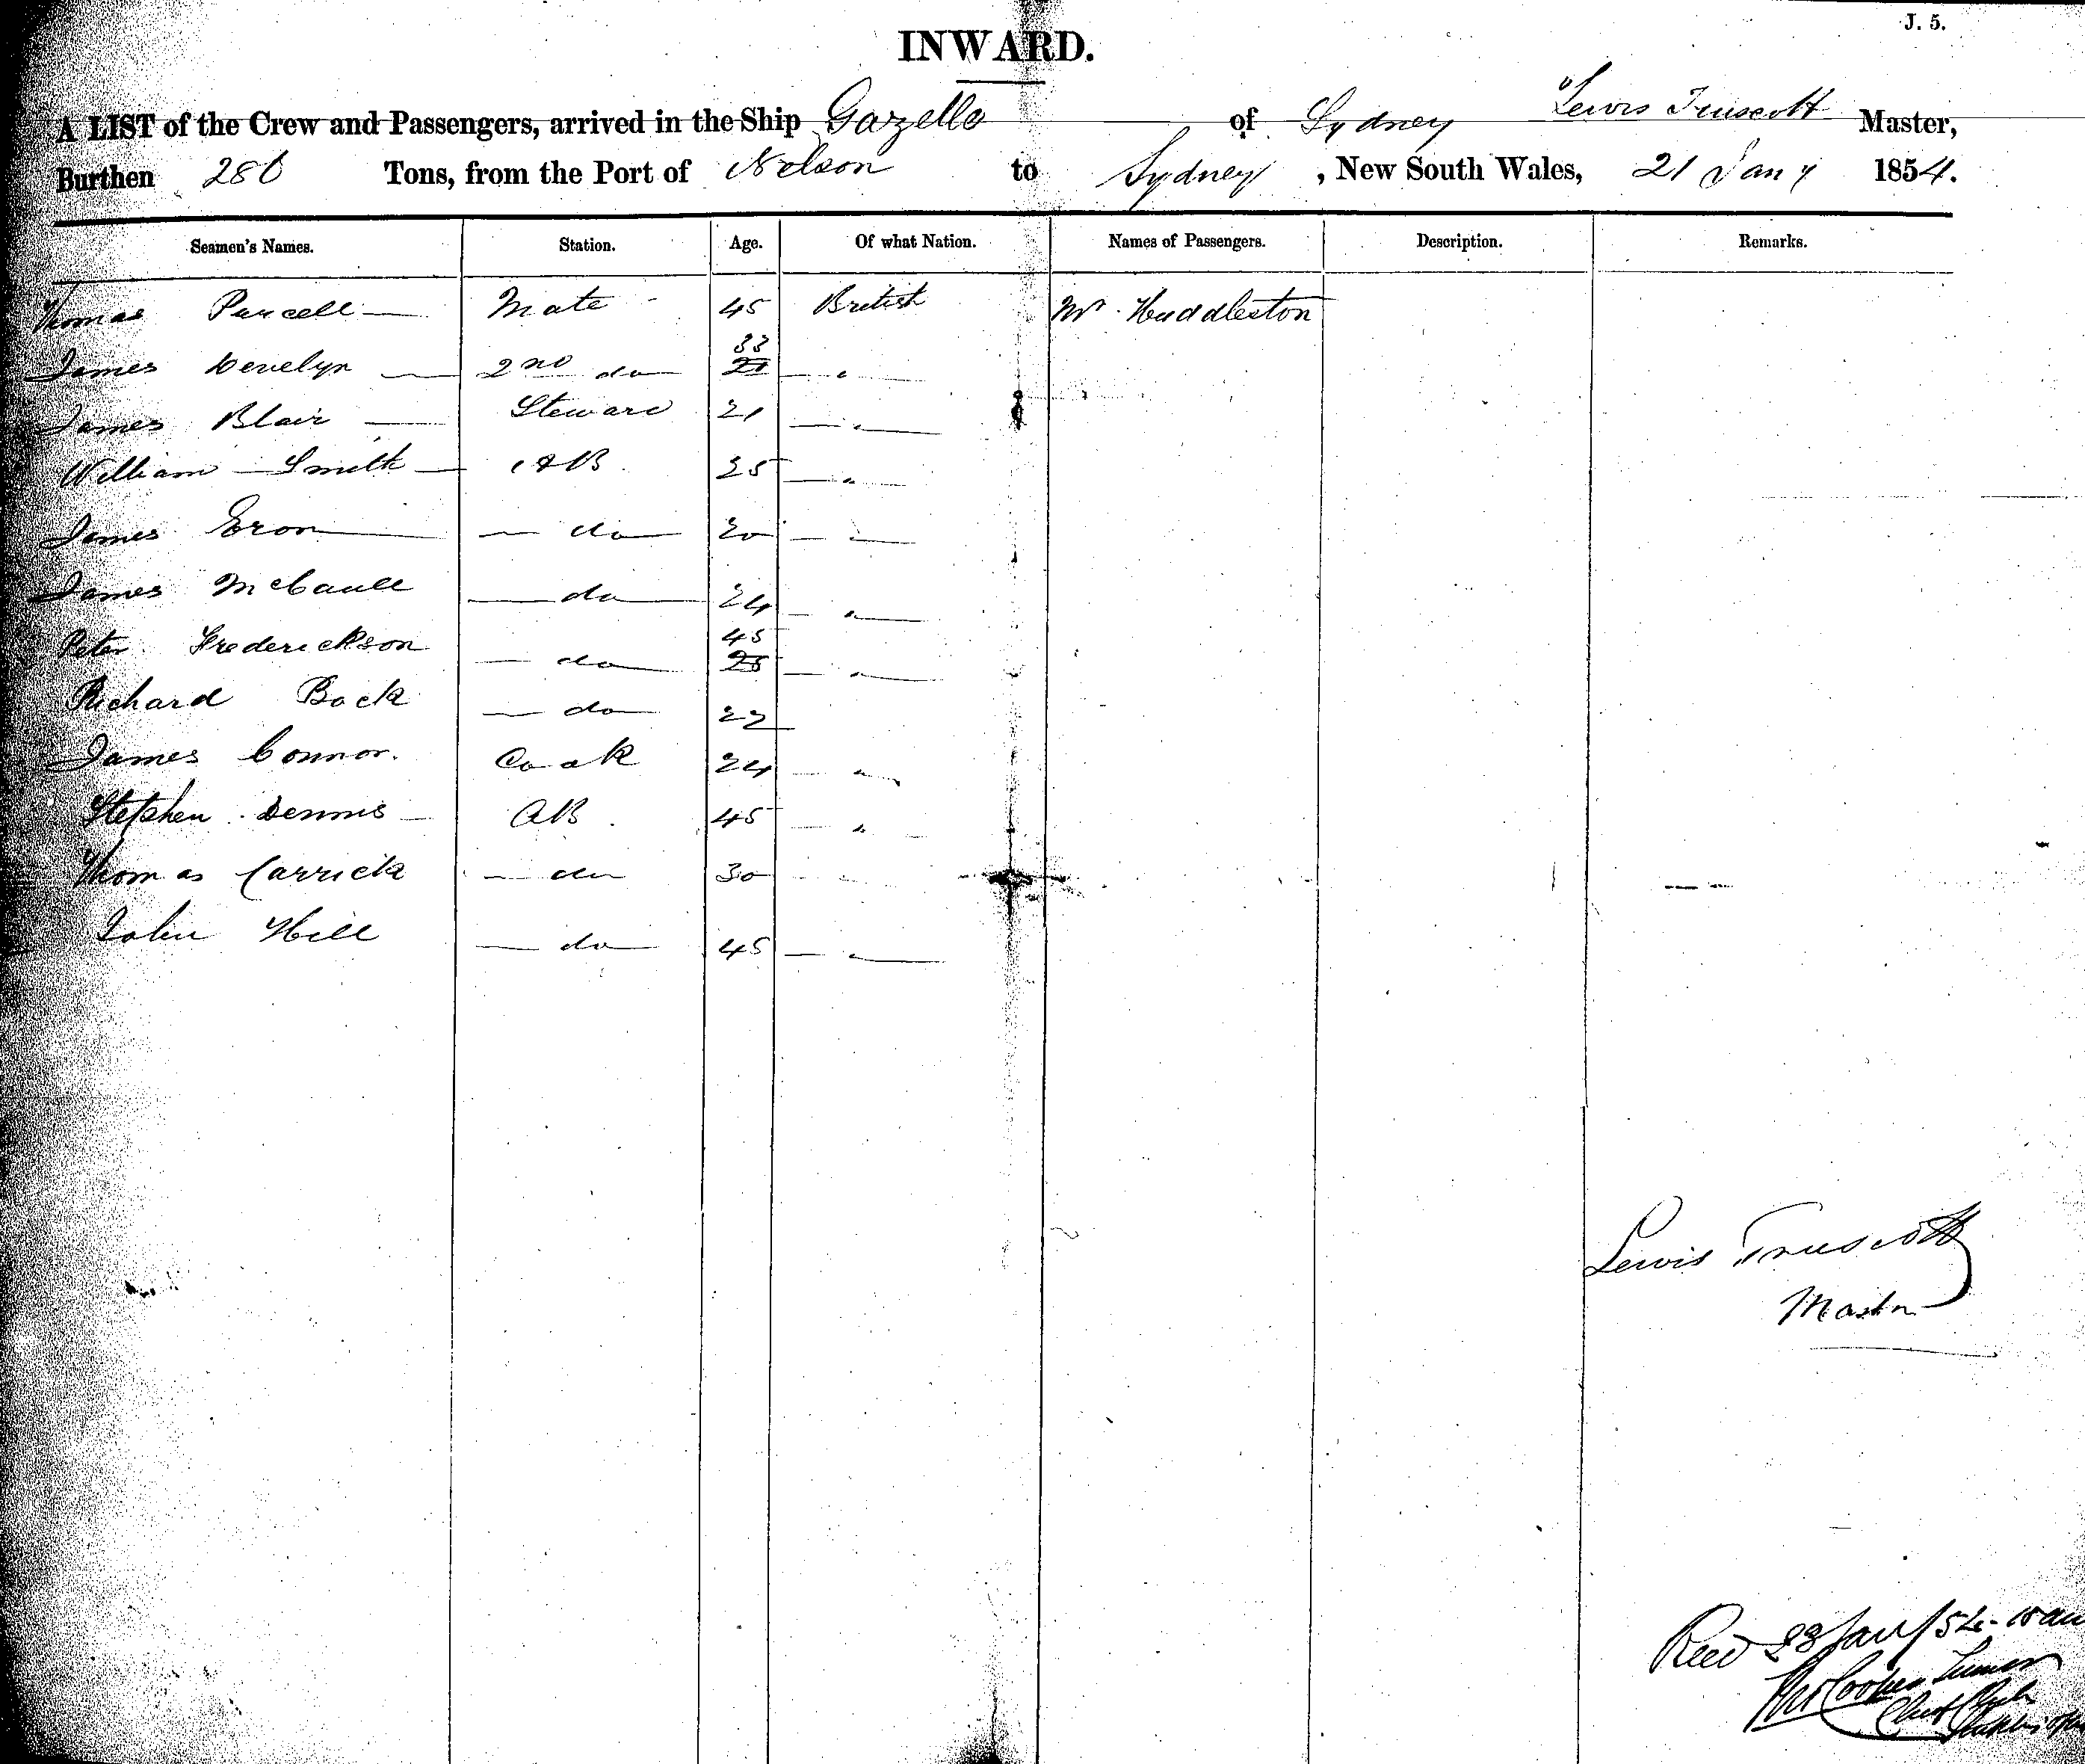 J. 5.
INWARD.
A LIST of the Crew and Passengers, arrived in the Ship Gazelle of Sydney Lewis Truscott Master,
Burthen 286 Tons, from the Port of Nelson to Sydney, New South Wales, 21 Jany 1854.
Seamen's Names. Station. Age. Of what Nation. Names of Passengers. Description. Remarks.
Thomas Purcell — Mate 45 British Mr. Huddleston
33
James Develyn — 2nd do 21 — " —
James Blair — Steward 21 — " —
William — Smith — AB 25 — " —
James Eron — do 20 — —
James McCaull — do — 24 — " —
45
Peter Frederickson — do — 25 — " —
Richard Bock — do 22 —
James Connor. Cook 24 — " —
Stephen Dennis — AB. 45 — " —
Thomas Carrick — do 30 — —
John Hill — do — 45 — " —
Lewis Truscott
Master
Recd 23 Jany/54